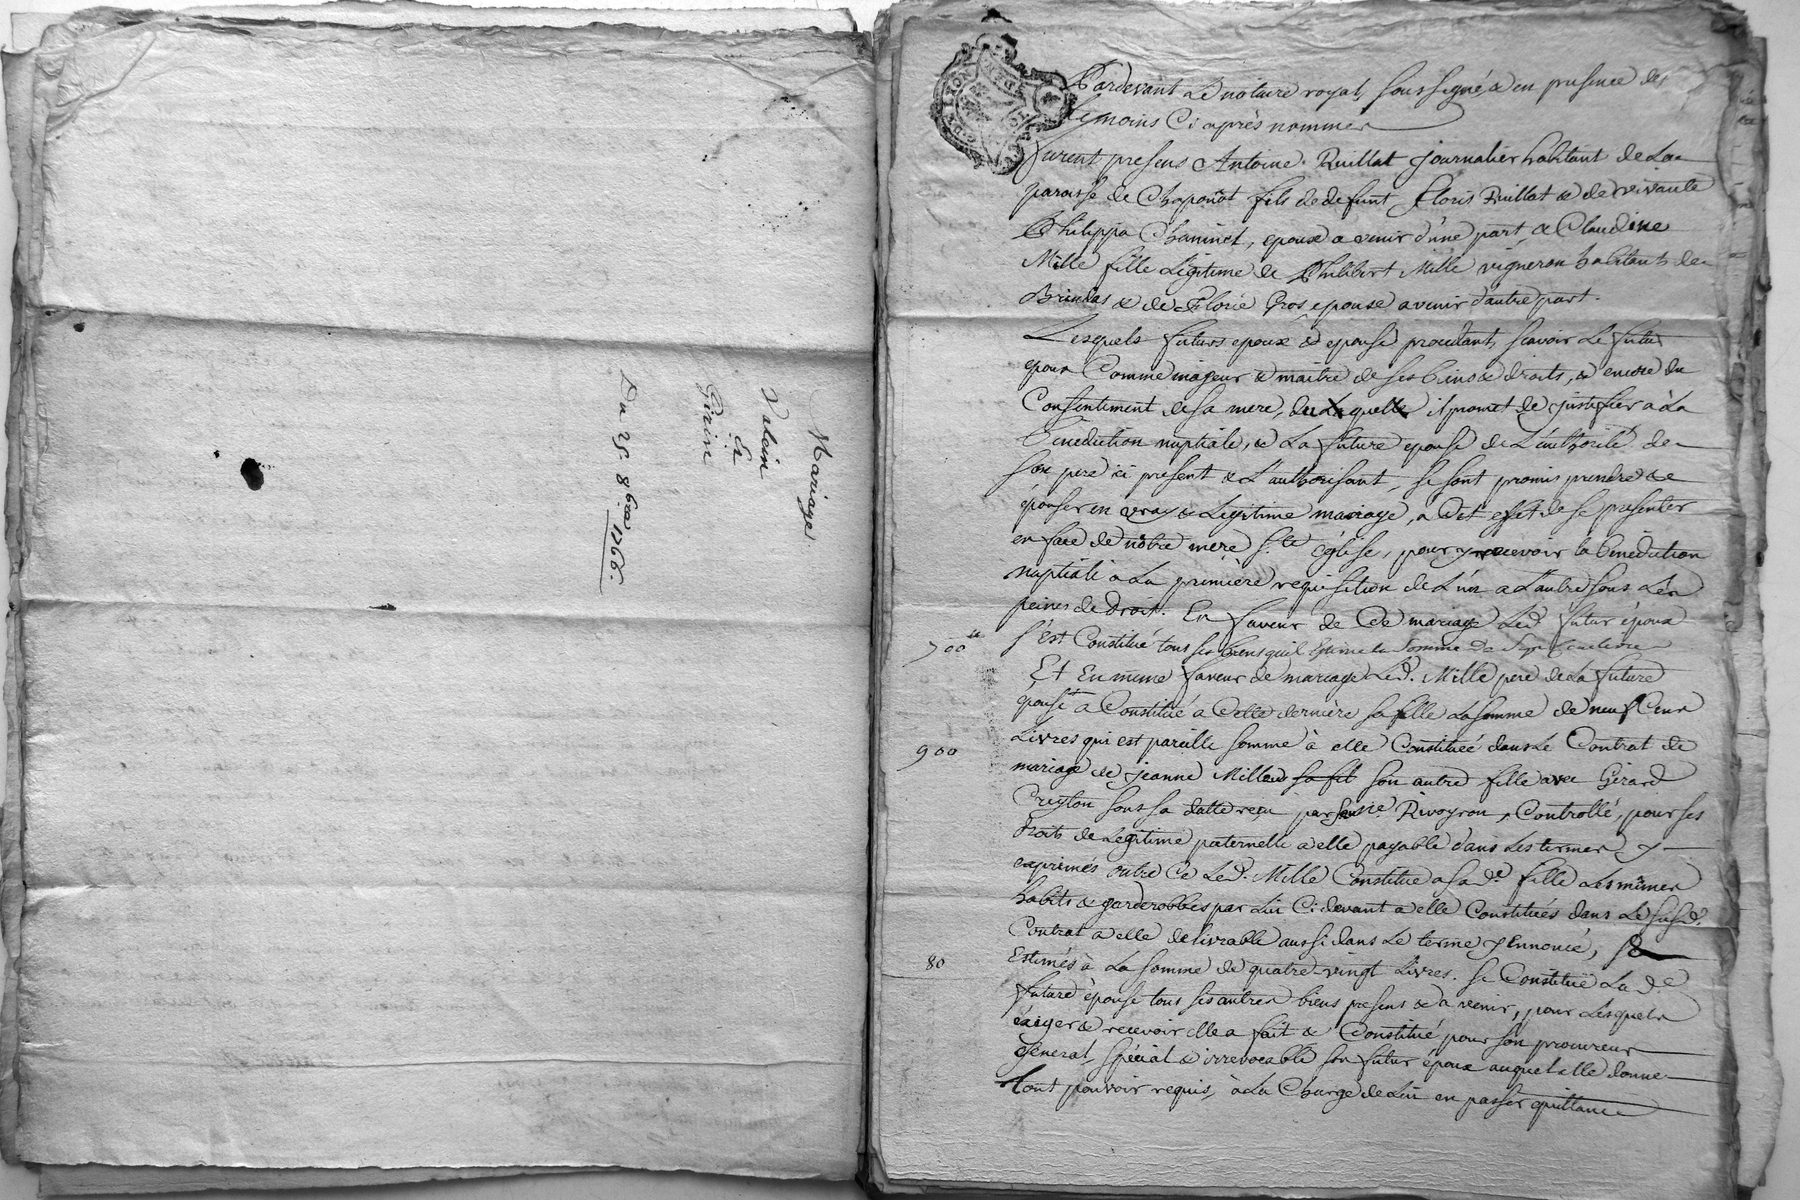 Mariage
Valein
Et
Girin
Du 25 8bre 1766.
Pardevant Le notaire royal, soussigné, & en presence des
temoins Ci après nommes
furent presens Antoine Ruillat journalier habitant de La
paroisse de Chaponôt fils de defunt Floris Ruillat & de vivante
Philippa Chaninet, epoux a venir d'une part, & Claudine
Mille fille Légitime de Philibert Mille vigneron habitants de
Brindas & de Florie Gros epouse avenir d'autre part.
Lesquels futurs epoux & epouse procedant, scavoir Le futur
epoux Comme majeur & maitre de ses biens & droits, & encore du
Consentement de sa mere, du Laquelle il promet de justifier a La
benediction nuptiale, & La future epouse de L'authorité de
son pere ici présent & L'authorisant, se sont promis prendre &
épouser en vray & Legitime mariage, a Cet effet de se presenter
en face de nôtre mere Ste église, pour y recevoir la benediction
nuptiale a La premiere requisition de L'un a L'autre sous Les
peines de droit. En faveur de Ce mariage Led. futur époux
700 s'est Constitué tous ses biens qu'il Estime la Somme de Sept Cent Livres
Et En même faveur de mariage Led. Mille pere de La future
épouse a Constitué a Cette derniere sa fille La somme de neuf Cens
900 Livres qui est pareille somme à elle Constituée dans Le Contrat de
mariage de jeanne Mille sa fil son autre fille avec Gérard
Creyton sous sa datte reçu par Rivoyron, Controllé, pour ses
droits de Légitime paternelle a elle payable dans Les termes y
exprimés outre Ce Led. Mille Constitue a sa de fille Les mêmes
habits & garderobbes par Lui Ci devant a elle Constitués dans Le susd.
Contrat a elle delivrable aussi dans Le terme y Ennoncé, &
80 Estimés à La somme de quatre vingt Livres. se Constitue La de
future épouse tous ses autres biens presens & a venir, pour Lesquels
éxiger & recevoir elle a fait & Constitué pour son procureur
Général, Spécial & irrevocable son futur époux auquel elle donne
tout pouvoir requis, à La Charge de Lui en passer quittance